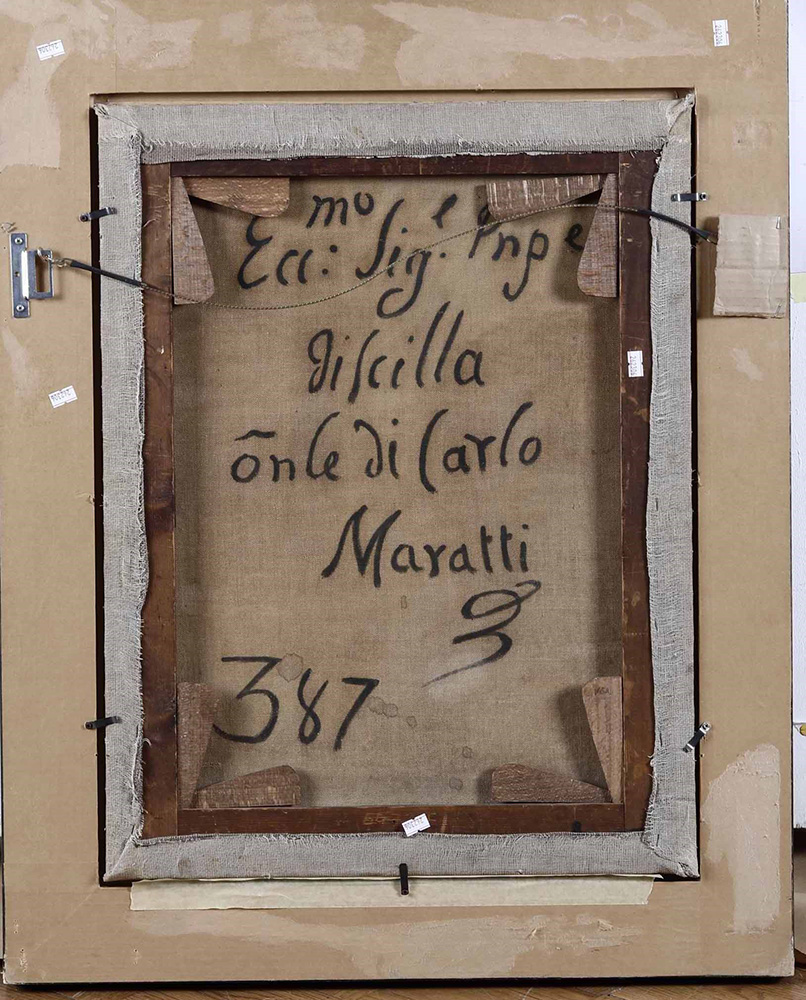 Ecc:mo Sig.e Pnpe
di Scilla
õnle di Carlo
Maratti
387